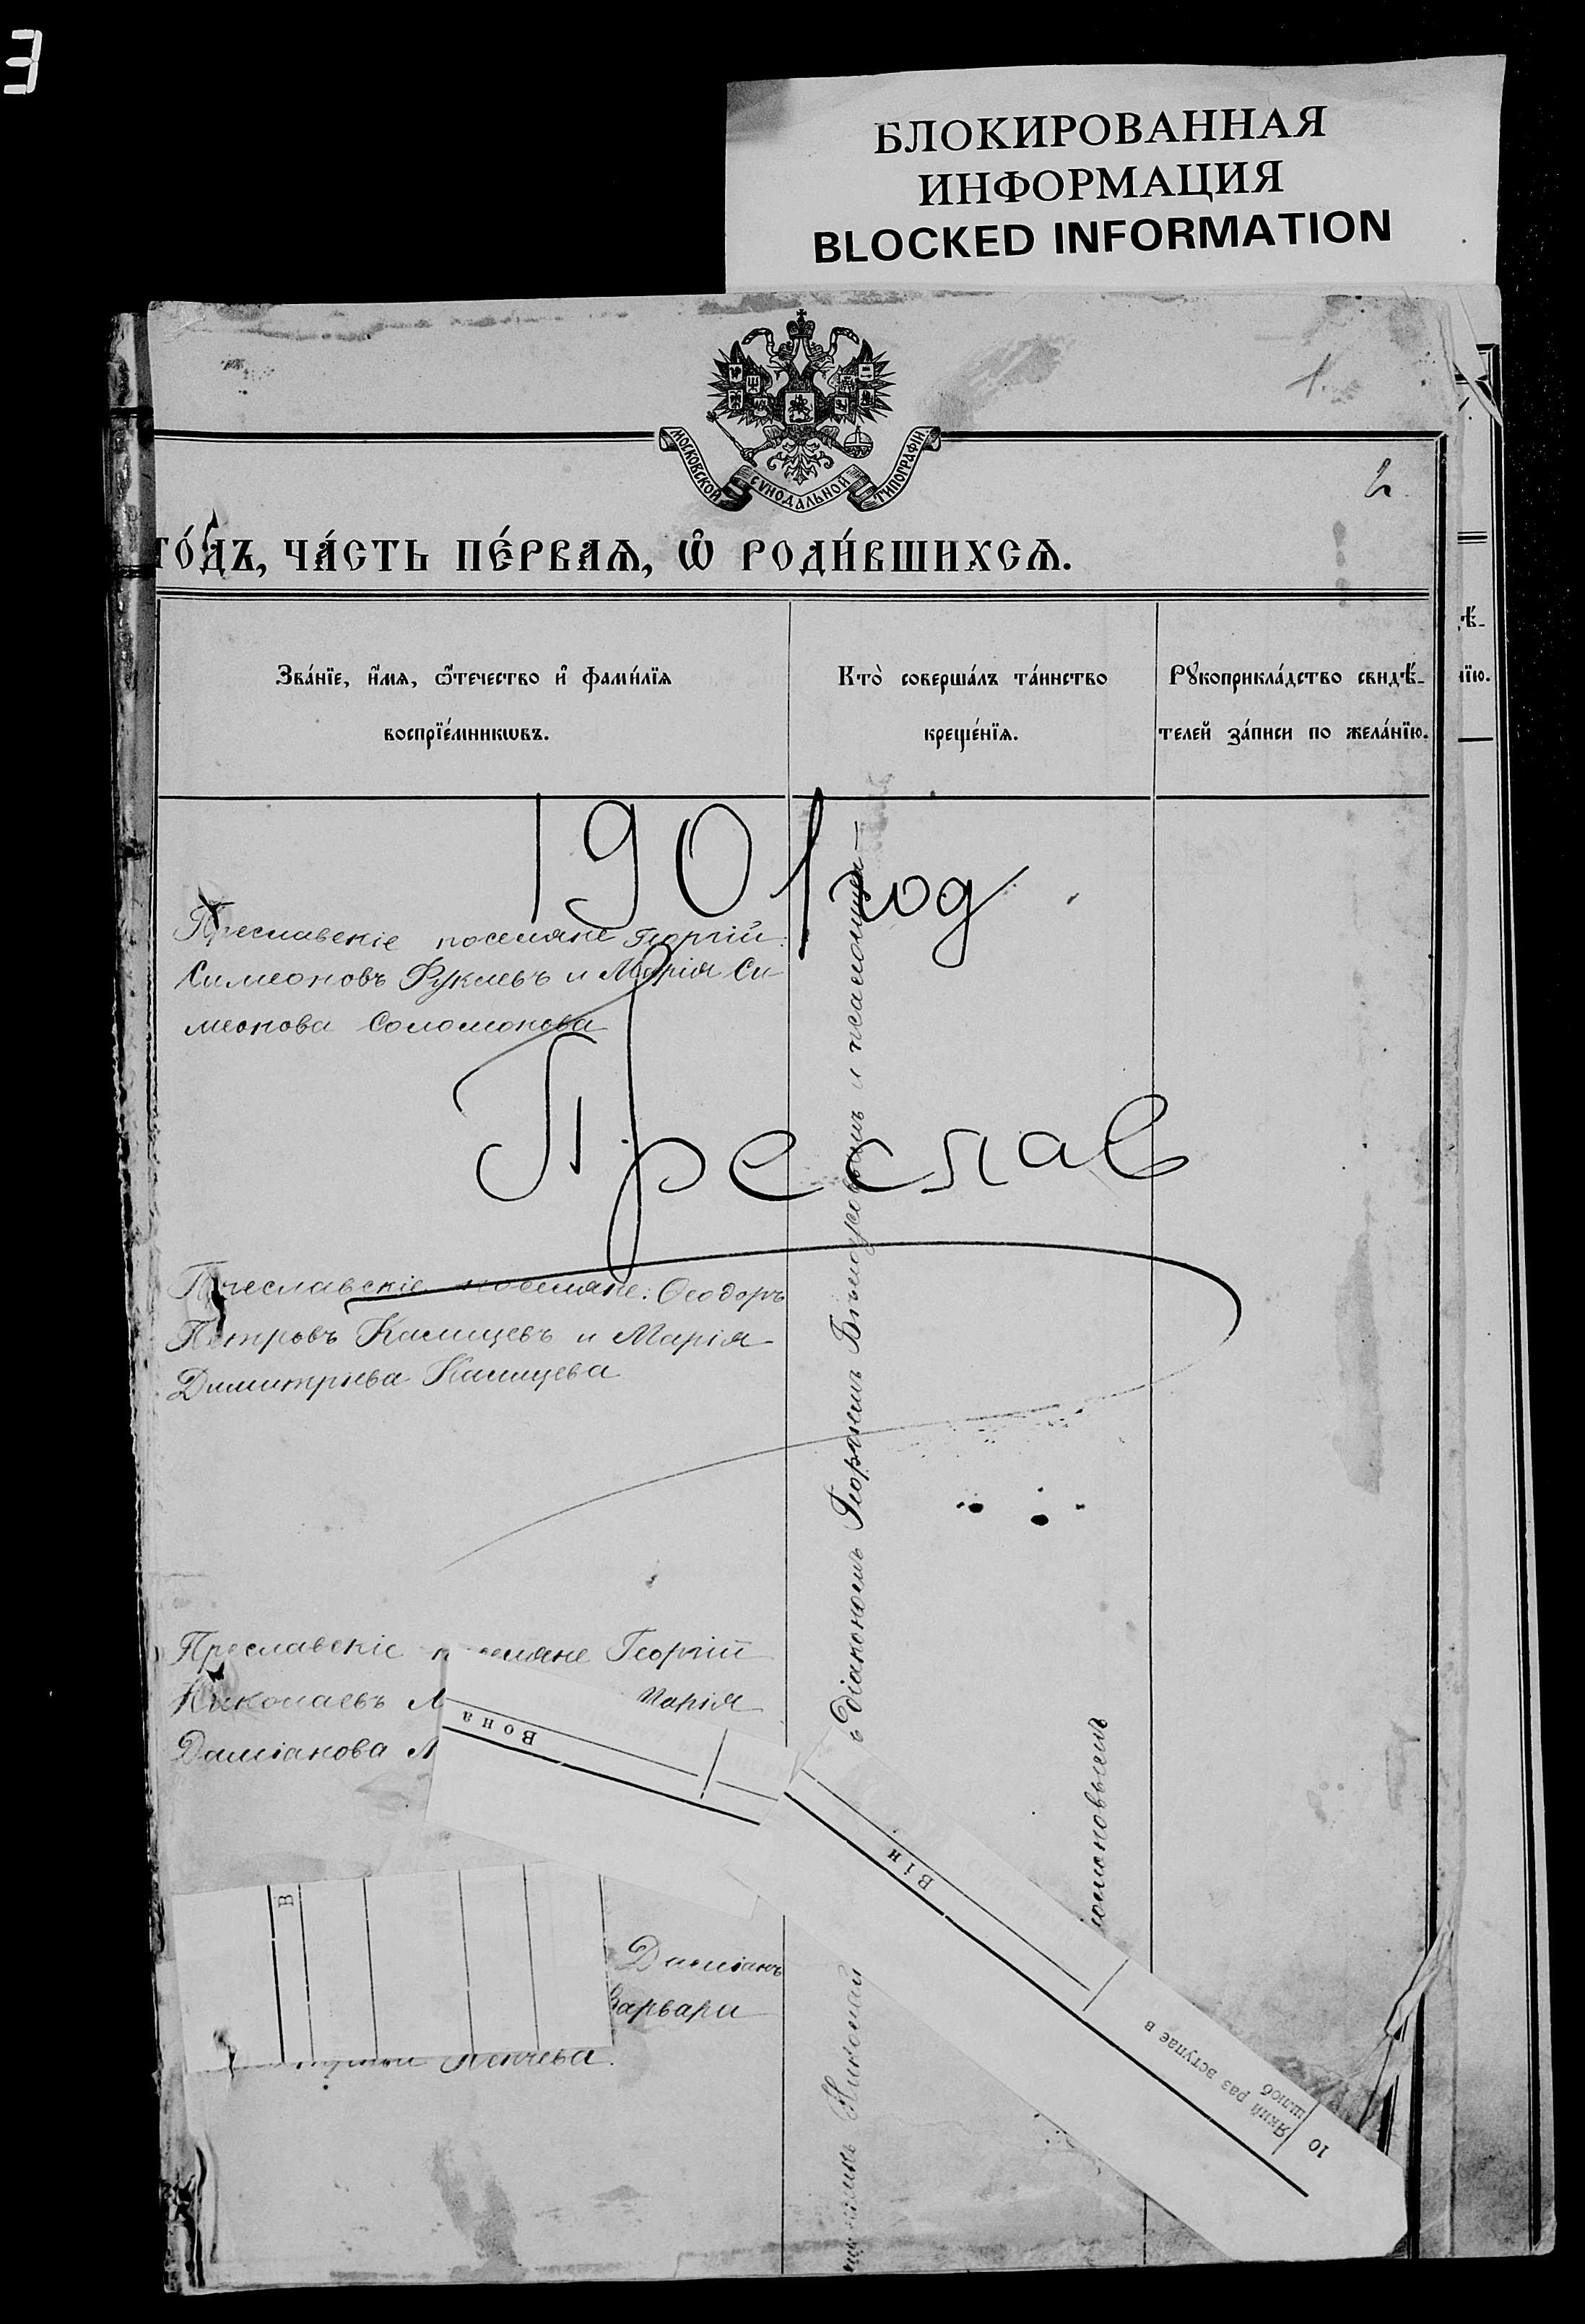 БЛОКИРОВАННАЯ
ИНФОРМАЦИЯ
BLOCKED INFORMATION
1.
МОСКОВСКОЙ СѴНОДАЛЬНОЙ ТИПОГРАФІИ
2
го́дъ, ча́сть пе́рваѧ, ѡ҆ роди́вшихсѧ.
Зва́нїе, и҆́мѧ, ѻ҆́течество и҆ фами́лїѧ
воспрїе́мникѡвъ.
Кто̀ соверша́лъ та́инство
креще́нїѧ.
Рꙋкоприкла́дство свидѣ́-
телей за́писи по жела́нїю.
ѣ́-
нїю.
1901 год
Преславскіе поселяне Георгій
Симеоновъ Фуклевъ и Марія Си-
меонова Соломонова
Преслав
Преславскіе поселяне: Ѳеодоръ
Петровъ Калицевъ и Марія
Димитріева Калицева
Преславскіе поселяне Георгій
Николаевъ Марія
Даміанова
Даміанъ
Варвара
Пенчева.
съ Діакономъ Георгіемъ и псаломщи-
Николай
Вона
Він
В
Який раз вступає в
шлюб
10